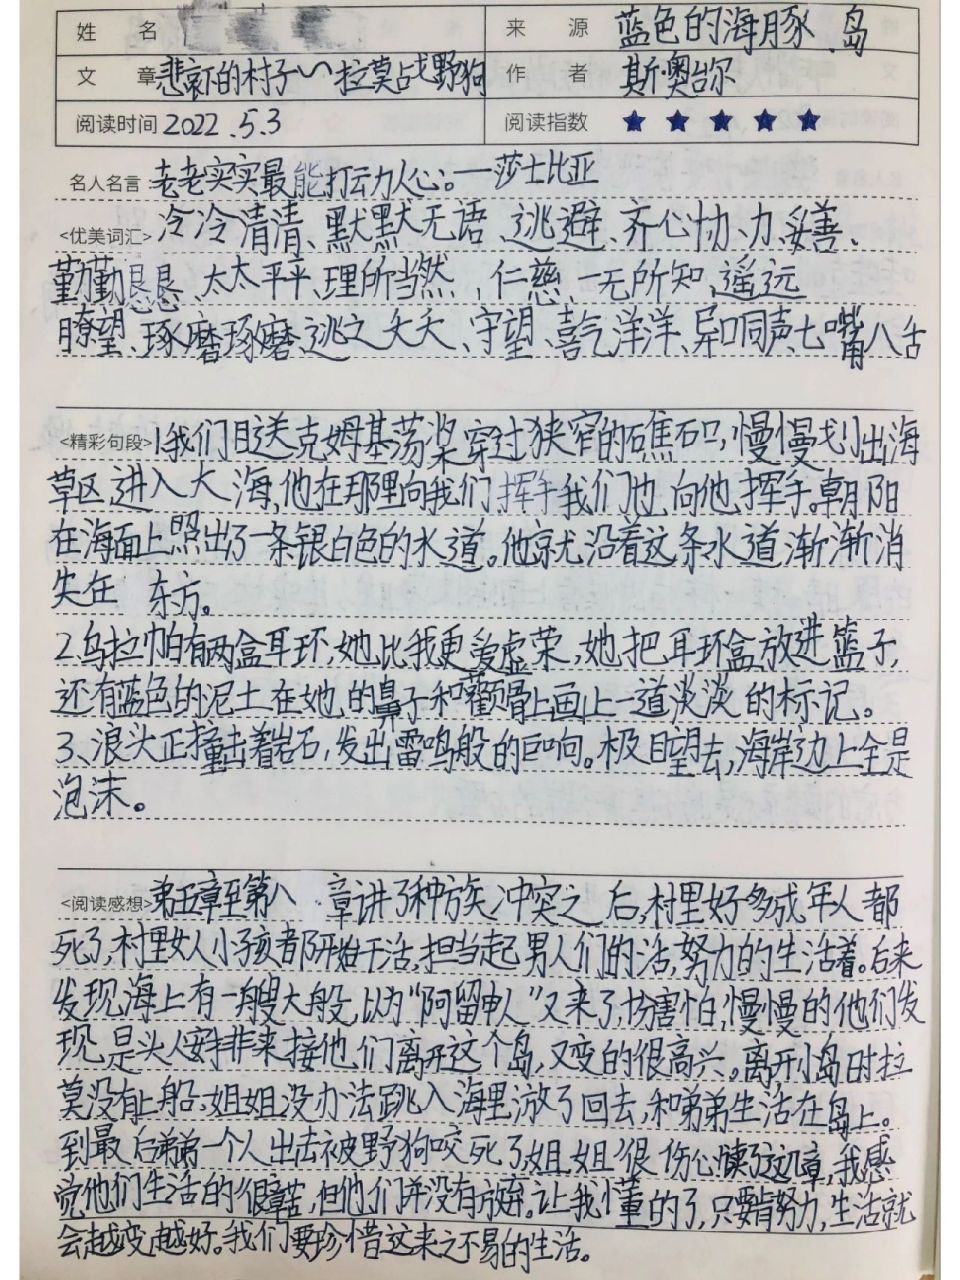 姓 名 来 源 蓝色的海豚 岛
文 章 悲哀的村子~拉莫战野狗 作 者 斯·奥台尔
阅读时间 2022.5.3 阅读指数 ★ ★ ★ ★ ★
名人名言 老老实实最能打动人心。—莎士比亚
<优美词汇>冷冷清清、默默无语 逃避、齐心协力、妥善、
勤勤恳恳、太太平平、理所当然、仁慈、一无所知、遥远
瞭望、琢磨琢磨、逃之夭夭、守望、喜气洋洋、异口同声、七嘴八舌
<精彩句段>1.我们目送克姆基荡桨穿过狭窄的礁石口,慢慢划出海
草区,进入大海,他在那里向我们挥手,我们也向他挥手。朝阳
在海面上照出了一条银白色的水道。他就沿着这条水道渐渐消
失在 东方。
2.乌拉帕有两盒耳环,她比我更爱虚荣,她把耳环盒放进篮子,
还有蓝色的泥土在她的鼻子和颧骨上画上一道淡淡的标记。
3、浪头正撞击着岩石,发出雷鸣般的巨响。极目望去,海岸边上全是
泡沫。
<阅读感想>第五章至第八 章讲了种族冲突之后,村里好多成年人都
死了,村里女人小孩都开始干活,担当起男人们的活,努力的生活着。后来
发现海上有一艘大船,以为“阿留申人”又来了,伤害怕,慢慢的他们发
现是头人安排来接他们离开这个岛,又变的很高兴。离开小岛时拉
莫没有上船,姐姐没办法跳入海里游了回去,和弟弟生活在岛上。
到最后弟弟一个人出去被野狗咬死了,姐姐很伤心,读了这几章,我感
觉他们生活的很辛苦,但他们并没有放弃。让我懂的了,只要肯努力,生活就
会越变越好。我们要珍惜这来之不易的生活。